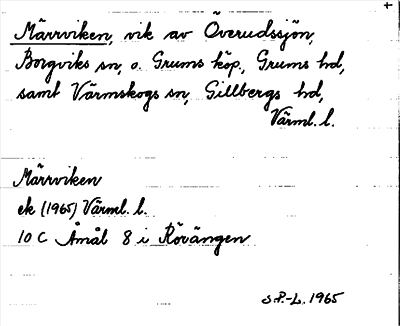 Märrviken, vik av Överudssjön,
Borgviks sn, o. Grums köp., Grums hd,
samt Värmskogs sn, Gillbergs hd,
Värml. l.
Märrviken
ek (1965) Värml. l.
10 C Åmål 8 i Rörängen
S.P.-L. 1965